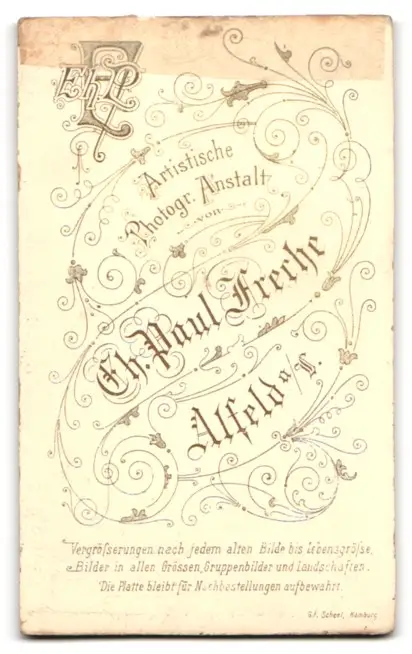 Eh P
Artistische
Photogr. Anstalt
von
Eh. Paul Freche
Alfeld a/L.
Vergröfserungen nach jedem alten Bilde bis Lebensgröfse,
Bilder in allen Grössen, Gruppenbilder und Landschaften.
Die Platte bleibt für Nachbestellungen aufbewahrt.
Hamburg